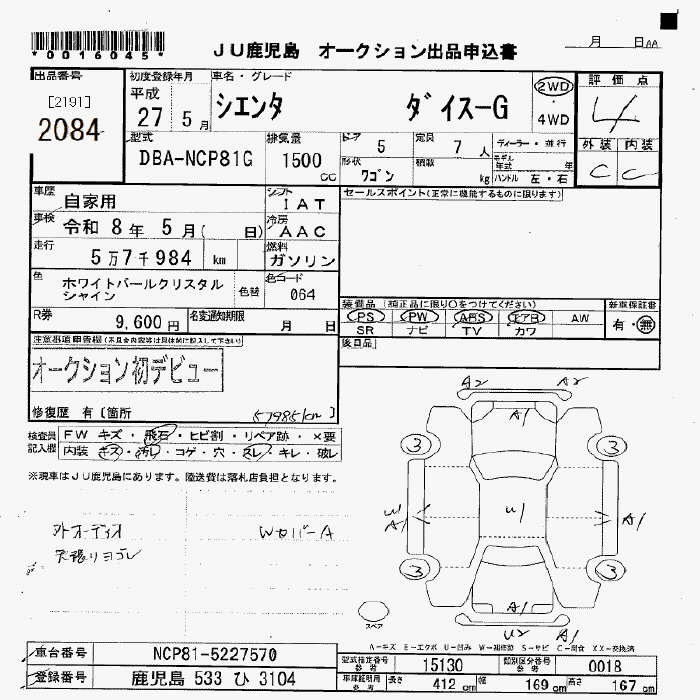 *0016045*
JU鹿児島 オークション出品申込書
月 日AA
出品番号
[2191]
2084
初度登録年月
平成
27 5月
車名・グレード
シエンタ ダイス-G
2WD
・
4WD
評価点
4
外装 内装
C C
型式
DBA-NCP81G
排気量
1500 cc
ドア
5
定員
7 人
形状
ワゴン
積数
kg
ディーラー・並行
モデル年式 年
ハンドル 左・右
車歴
自家用
シフト
IAT
車検
令和 8年 5月( 日)
冷房
AAC
走行
5万7千984 km
燃料
ガソリン
色
ホワイトパールクリスタル
シャイン
色替
色コード
064
R券
9,600円
名変通知期限
月 日
セールスポイント(正常に機能するものに限ります)
装備品 (純正品に限り○をつけてください)
PS PW ABS エアB AW
SR ナビ TV カワ
新車保証書
有・無
後日品
注意事項申告欄(不具合内容等は具体的に記入して下さい)
オークション初デビュー
修復歴 有〔箇所
57985km)
検査員
記入欄
FW キズ・飛石・ヒビ割・リペア跡・×要
内装 キズ・汚レ・コゲ・穴・スレ・キレ・破レ
※現車はJU鹿児島にあります。陸送費は落札店負担となります。
外オーディオ
天張りヨゴレ
WカバーA
A2 A2
A1
3 3
U1
A1
U1
A1
3 3
A1
U2 A1
スペア
A-キズ E-エクボ U-凹み W-補修跡 S-サビ C-腐食 XX-交換済
車台番号
NCP81-5227570
登録番号
鹿児島 533 ひ 3104
型式指定番号
参考
15130
類別区分番号
参考
0018
車庫証明用
参考
長さ 412 cm 幅 169 cm 高さ 167 cm